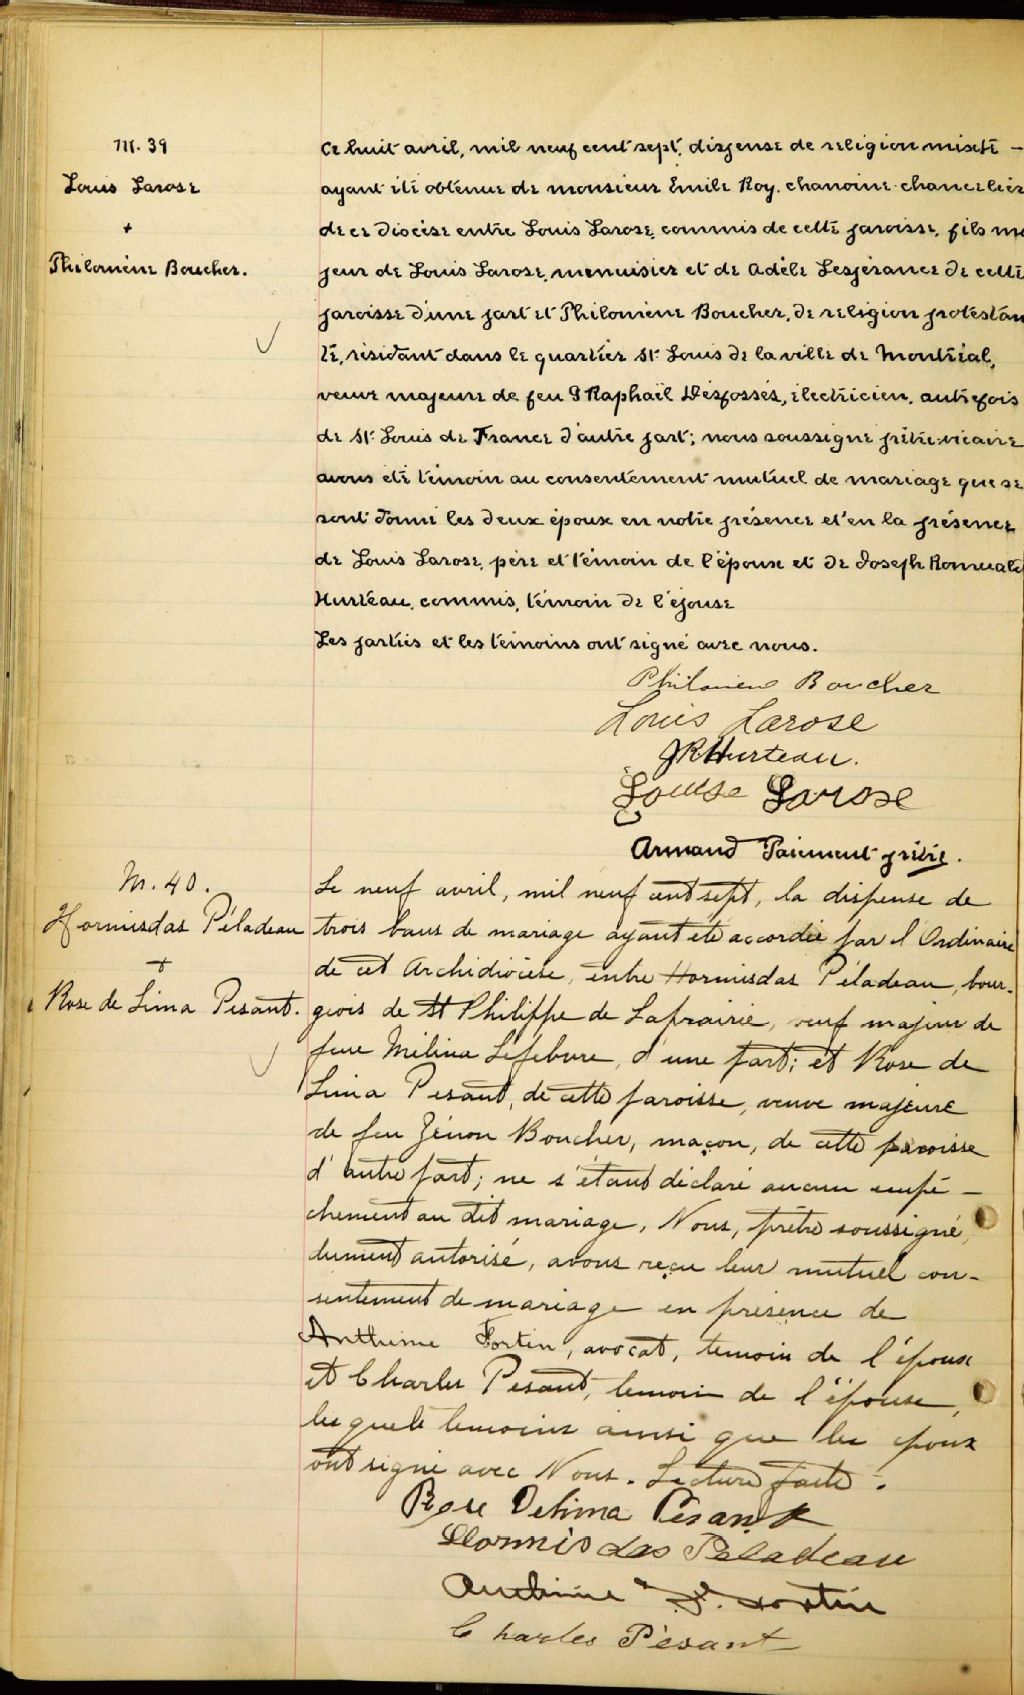 M. 39
Louis Larose
+
Philomène Boucher.
Ce huit avril, mil neuf cent sept, dispense de religion mixte –
ayant été obtenue de monsieur Emile Roy, chanoine chancelier
de ce diocèse entre Louis Larose, commis de cette paroisse, fils ma
jeur de Louis Larose, menuisier et de Adèle Lespérance de cette
paroisse d'une part et Philomène Boucher, de religion protestan
te, résidant dans le quartier St Louis de la ville de Montréal,
veuve majeure de feu Raphaël Desfossés, électricien, autrefois
de St Louis de France d'autre part; nous soussigné prêtre-vicaire
avons été témoin au consentement mutuel de mariage que se
sont donné les deux époux en notre présence et en la présence
de Louis Larose, père et témoin de l'époux et de Joseph Romuald
Hurteau, commis, témoin de l'épouse
Les parties et les témoins ont signé avec nous.
Philomène Boucher
Louis Larose
J R Hurteau.
Louise Larose
Armand Paiement prêtre.
M. 40.
Hormisdas Péladeau
+
Rose de Lima Pesant.
Le neuf avril, mil neuf cent sept, la dispense de
trois bans de mariage ayant été accordée par l'Ordinaire
de cet Archidiocèse, entre Hormisdas Péladeau, bour-
geois de St Philippe de Laprairie, veuf majeur de
feue Mélina Lefebvre, d'une part; et Rose de
Lima Pesant, de cette paroisse, veuve majeure
de feu Zénon Boucher, maçon, de cette paroisse
d'autre part; ne s'étant déclaré aucun empê –
chement au dit mariage, Nous, prêtre soussigné,
dument autorisé, avons reçu leur mutuel con-
sentement de mariage en présence de
Anthime Fortin, avocat, temoin de l'époux
et Charles Pesant, temoin de l'épouse,
lesquels temoins ainsi que les époux
ont signé avec Nous. Lecture faite.
Rose Delima Pésant
Hormisdas Peladeau
Anthime Fortin
Charles Pésant